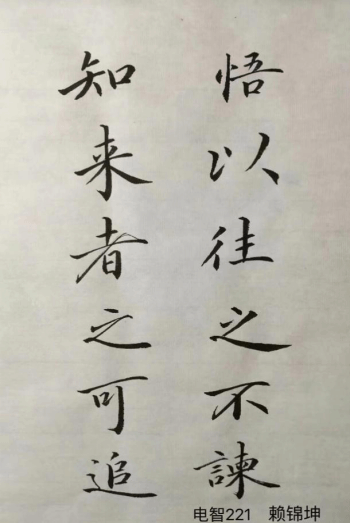 悟以往之不諫
知来者之可追
电智221 赖锦坤